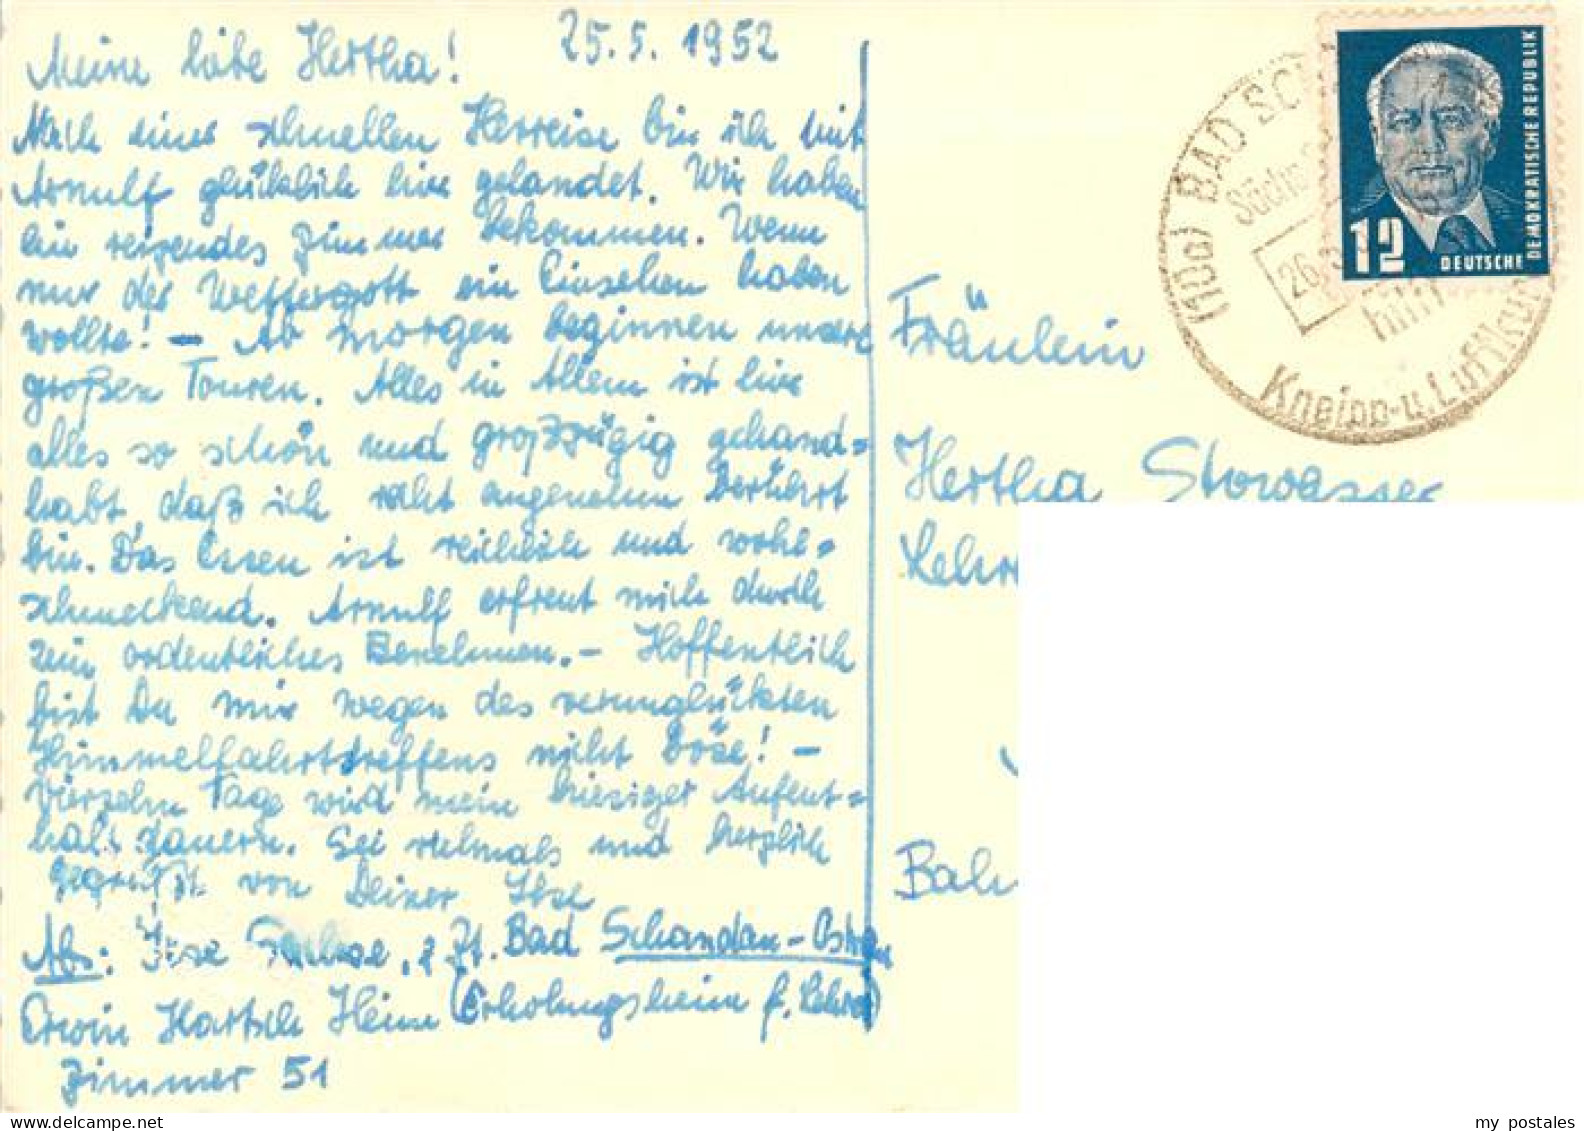 Meine liebe Hertha! 25.5.1952
Nach einer schnellen Herreise bin ich mit
Arnulf glücklich hier gelandet. Wir haben
ein reizendes Zimmer bekommen. Wenn
nur der Wettergott ein Einsehen haben
wollte! – Ab morgen beginnen unsere
großen Touren. Alles in Allem ist hier
alles so schön und großzügig gehand=
habt, daß ich recht angenehm berührt
bin. Das Essen ist reichlich und wohl=
schmeckend. Arnulf erfreut mich durch
sein ordentliches Benehmen. – Hoffentlich
bist Du mir wegen des verunglückten
Himmelfahrtstreffens nicht böse! –
Vierzehn Tage wird mein hiesiger Aufent=
halt dauern. Sei vielmals und herzlich
gegrüßt von Deiner Ilse
Abs: Ilse z. Zt. Bad Schandau – Ostrau
Erwin Hartsch Heim (Erholungsheim f. Lehrer)
Zimmer 51
Fräulein
Hertha Stowasser
(10a) BAD SC
Sächs
26.5
Kneipp- u. Luftkur
12
DEUTSCHE
DEMOKRATISCHE REPUBLIK
my postales